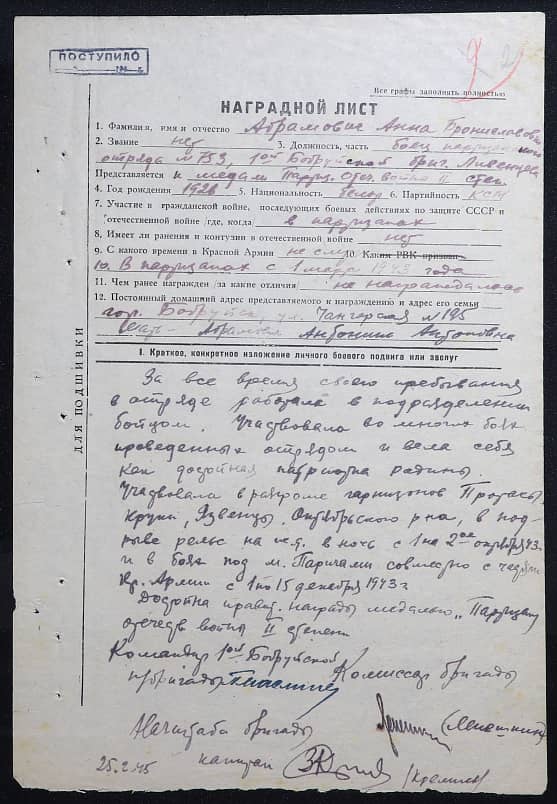 ПОСТУПИЛО
Все графы заполнять полностью
НАГРАДНОЙ ЛИСТ
1. Фамилия, имя и отчество Абрамович Анна Брониславовна
2. Звание нет 3. Должность, часть боец партизанского
отряда № 753, 1ой Бобруйской бриг.
Представляется к медали Партиз. Отеч. войны II степ.
4. Год рождения 5. Национальность белор 6. Партийность
7. Участие в гражданской войне, последующих боевых действиях по защите СССР и
отечественной войне /где, когда/ в партизанах
8. Имеет ли ранения и контузии в отечественной войне нет
9. С какого времени в Красной Армии не служ 10. Каким РВК призван
10. В партизанах с 1 марта 1943 года
11. Чем ранее награжден /за какие отличия/ не награждалась
12. Постоянный домашний адрес представляемого к награждению и адрес его семьи
гор. Бобруйск, ул. Чангарская № 195
Абрамович Антонина Антоновна
ДЛЯ ПОДШИВКИ
I. Краткое, конкретное изложение личного боевого подвига или заслуг
За все время своего пребывания
в отряде работала в подразделении
бойцом. Участвовала во многих боях
проведенных отрядом и вела себя
как достойная патриотка родины.
Участвовала в разгроме гарнизонов Протасы
Круки, Язвенцы, Октябрьского р-на, в под-
рыве рельс на ж.д. в ночь с 1 на 2ое октября 43г.
и в боях под м. Паричами совместно с частями
Кр. Армии с 1 по 15 декабря 1943 г
Достойна правит. награды медалью „Партизану
отечеств войны II степени
Командир 1ой Бобруйской
п/бригады
Комиссар бригады
Нач. штаба бригады
капитан
25.2.45